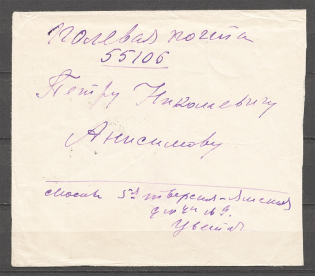 Полевая почта
55106
Петру Николаевичу
Анисимову
Москва 5я Тверская-Ямская